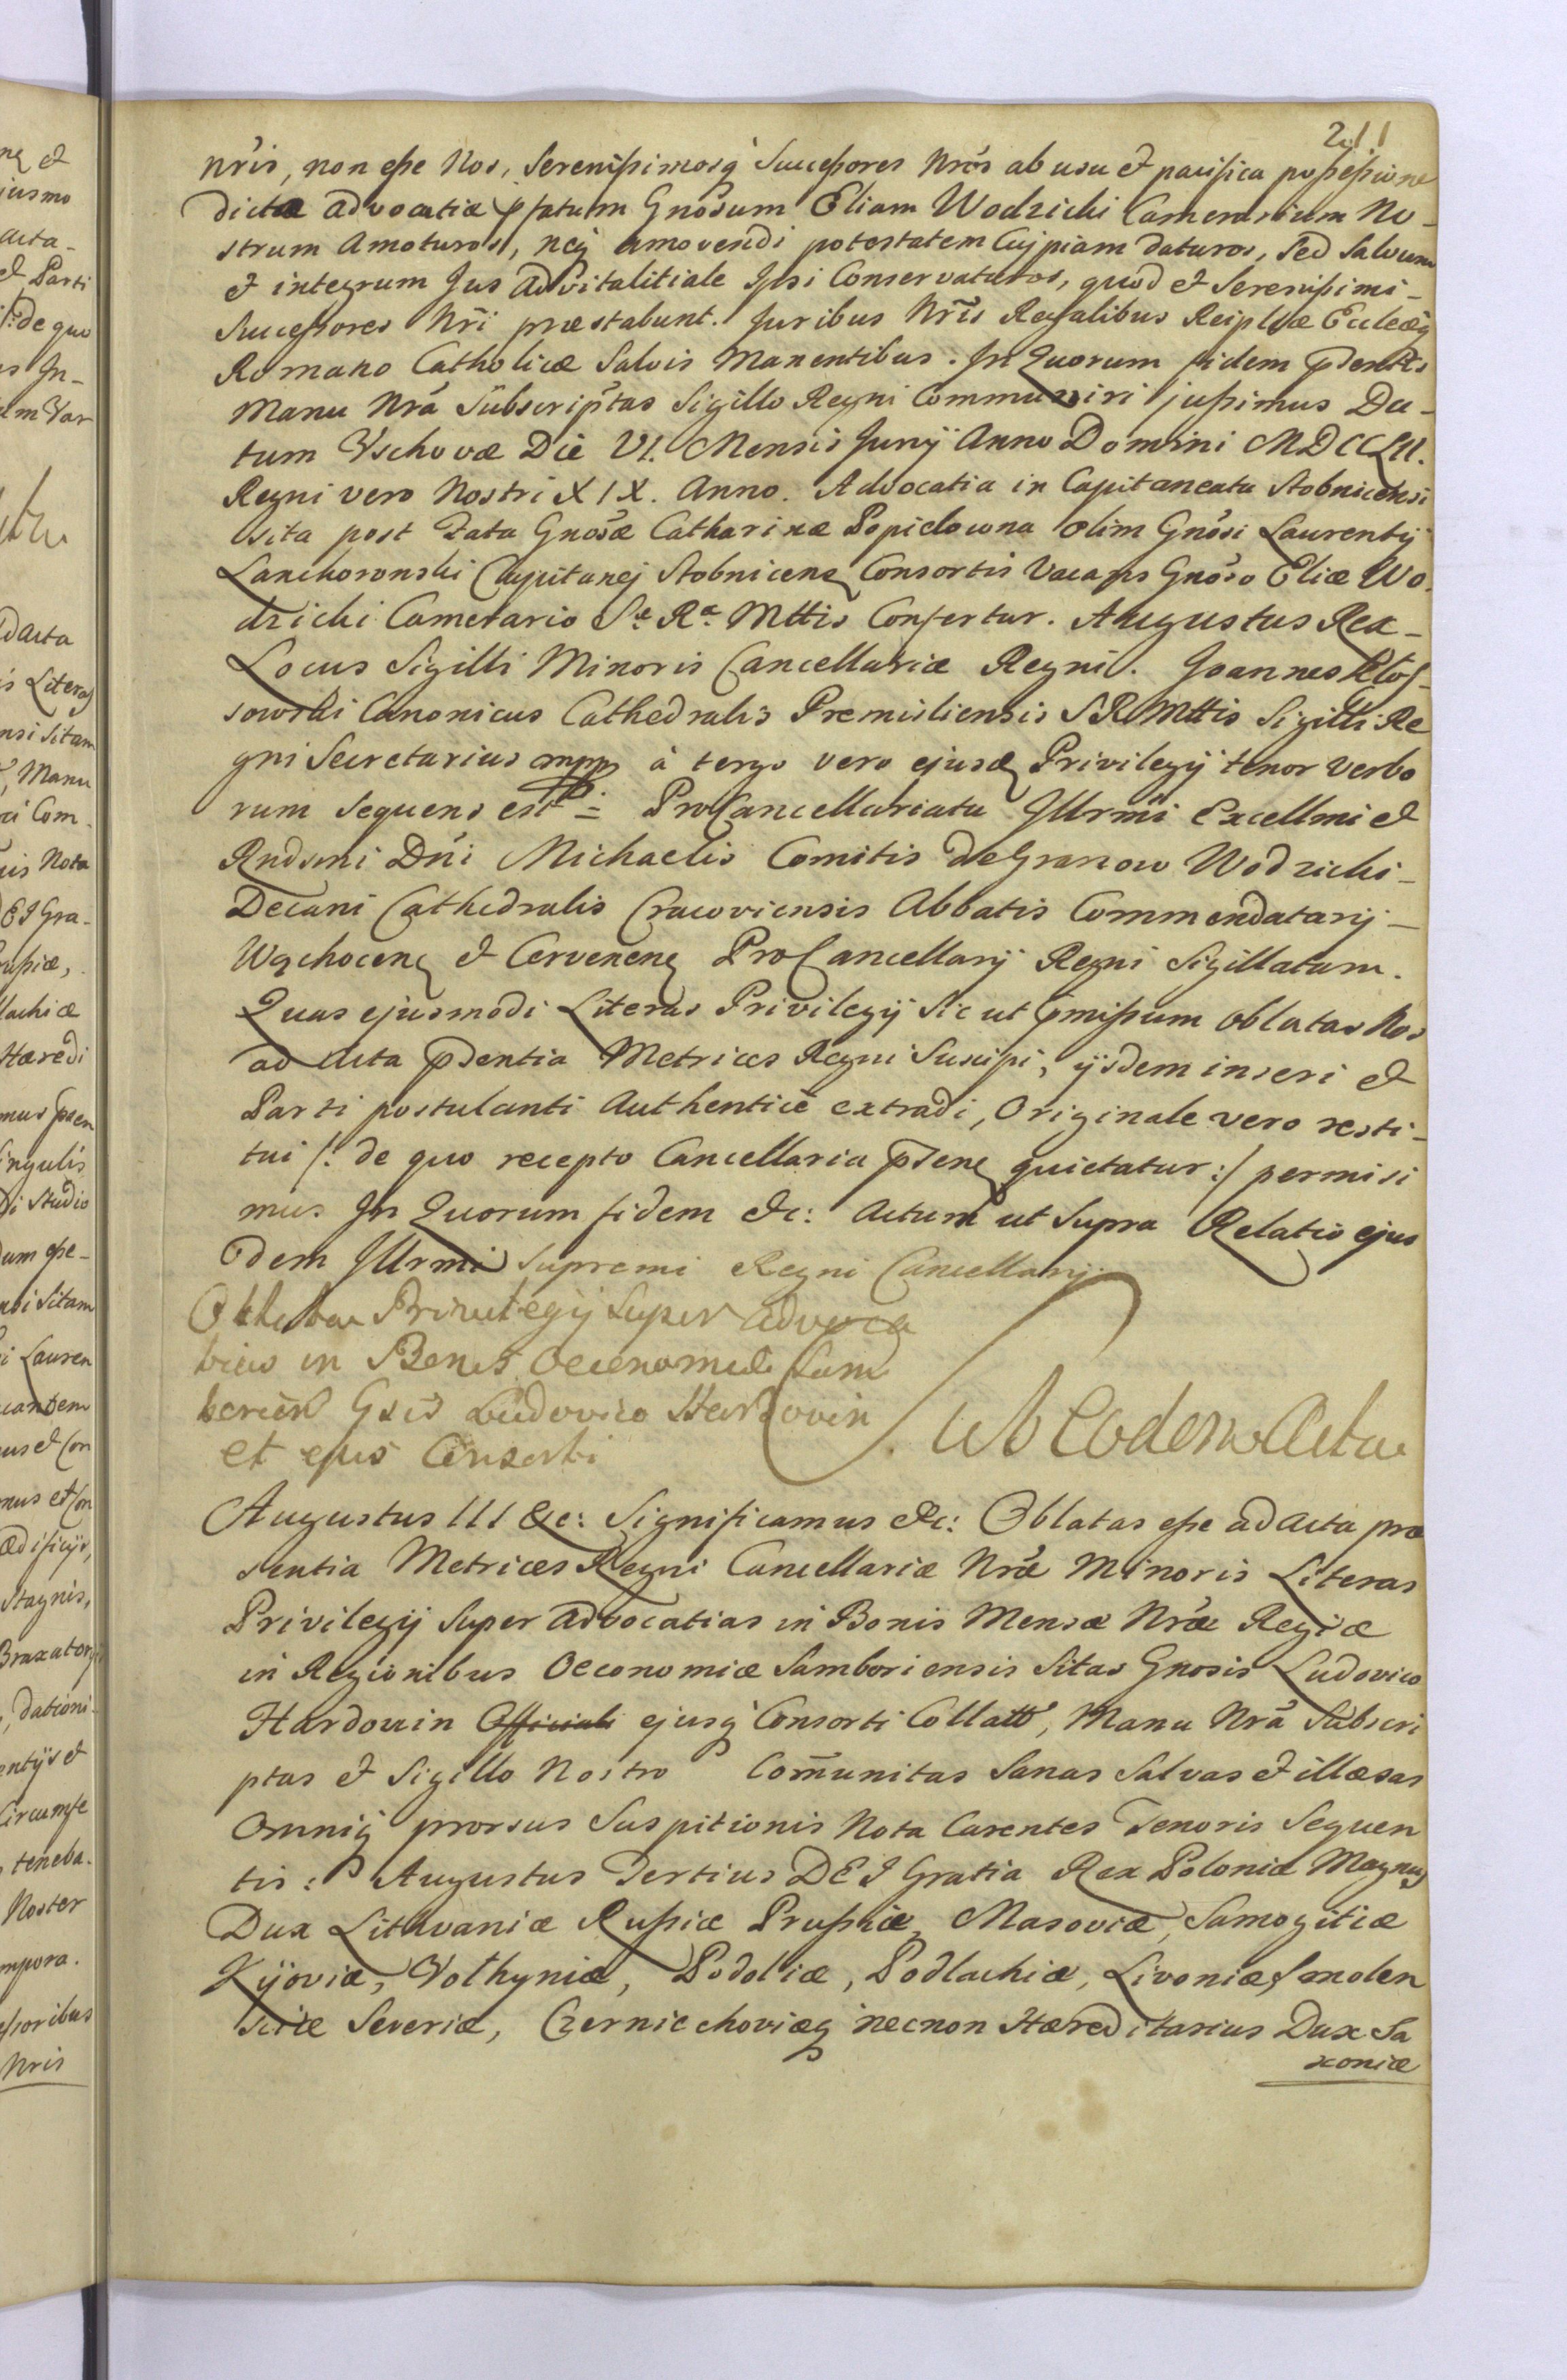 211
nr̃is, non esse Nos, Serenissimosq̃ Successores Nrõs ab usu et pacifica possessione
dictæ advocatiæ p̃fatum Gnõsum Eliam Wodzicki Camerarium No-
strum Amoturos, neq̃ amovendi potestatem Cuipiam daturos, sed Salvum
et integrum Jus Advitalitiale Ipsi Conservaturos, quod et Serenissimi-
Successores Nr̃i præstabunt. Juribus Nr̃is Regalibus Reiplcæ Ecclæq̃
Romano Catholicæ Salvis Manentibus. In Quorum fidem p̃sentes
Manu Nrã Subscriptas Sigillo Regni Communiri jussimus Da-
tum Vschovæ Die VI. Mensis Junij Anno Domini MDCCLII.
Regni vero Nostri XIX. Anno. Advocatia in Capitaneatu Stobnicensi
sita post Fata Gnosæ Catharinæ Popielowna olim Gnõsi Laurentij
Lanckoronski Capitanej Stobnicens Consortis Vacans Gnõso Eliæ Wo-
dzicki Camerario Sæ Ræ Mttis Confertur. Augustus Rex-
Locus Sigilli Minoris Cancellariæ Regni. Joannes Klos-
sowski Canonicus Cathedralis Premisliensis SRMttis Sigilli Re
gni Secretarius mpp à tergo vero ejusd Privilegij tenor verbo
rum sequens est = ProCancellariatu Illrmi Excellmi et
Rndsmi Dñi Michaelis Comitis de Granow Wodzicki-
Decani Cathedralis Cracoviensis Abbatis Commendatarij-
Wąchocens et Cervenens ProCancellarij Regni Sigillatum.
Quas ejusmodi Literas Privilegij sic ut p̃missum oblatas Nos
ad Acta p̃sentia Metrices Regni Suscipi, ijsdem inseri et
Parti postulanti Authenticè extradi, Originale vero resti-
tui /: de quo recepto Cancellaria p̃sens quietatur :/ permisi
mus In Quorum fidem etc: Actum ut Supra Relatio ejus
dem Illrmi Supremi Regni Cancellarij
Oblata Privilegij Super advoca
tias in Bonis Oeconomiæ Sam
borien Gsis Ludovico Hardovin
et ejus Consorti
Ab Eodem Actu
Augustus III etc: Significamus etc: Oblatas esse ad Acta præ
sentia Metrices Regni Cancellariæ Nræ Minoris Literas
Privilegij Super Advocatias in Bonis Mensæ Nræ Regiæ
in Regionibus Oeconomiæ Samboriensis Sitas Gnosis Ludovico
Hardouin Officiali ejusq̃ Consorti Collatas, Manu Nrã Subscri
ptas et Sigillo Nostro Com̃unitas Sanas Salvas et illæsas
Omniq̃ prorsus Suspitionis Nota Carentes Tenoris Sequen
tis: Augustus Tertius DEI Gratia Rex Poloniæ Magnus
Dux Lithvaniæ Russiæ Prussiæ, Masoviæ, Samogitiæ
Kijoviæ, Volhyniæ, Podoliæ, Podlachiæ, Livoniæ Smolen
sciæ Severiæ, Czerniechoviæq̃ necnon Hæreditarius Dux Sa
xoniæ